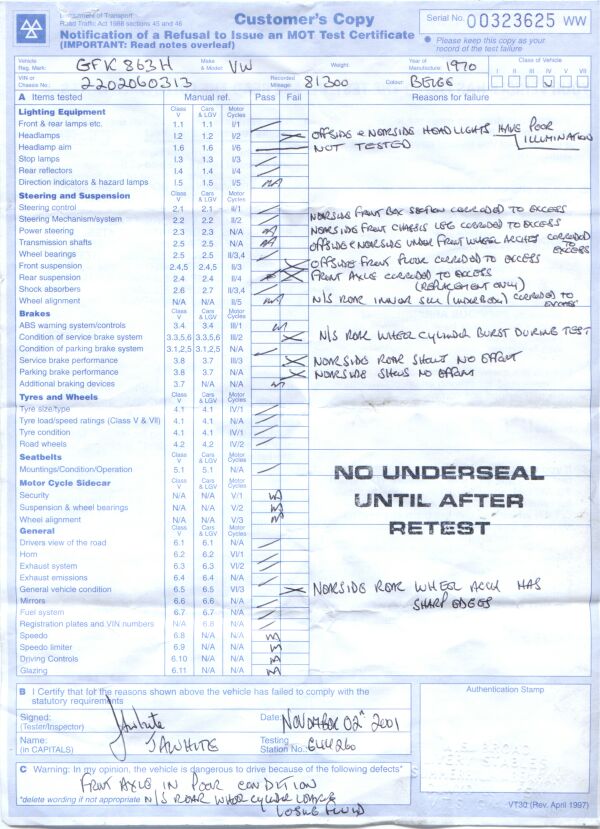 Department of Transport
Road Traffic Act 1988 sections 45 and 46
Customer's Copy
Notification of a Refusal to Issue an MOT Test Certificate
(IMPORTANT: Read notes overleaf)
Serial No. 00323625 WW
Please keep this copy as your
record of the test failure
Vehicle Reg. Mark: GFK 863H Make & Model: VW Weight: Year of Manufacture: 1970
Class of Vehicle I II III IV V VII
VIN or Chassis No.: 2202060313 Recorded Mileage: 81300 Colour: BEIGE
A Items tested Manual ref. Pass Fail Reasons for failure
Lighting Equipment Class V Cars & LGV Motor Cycles
Front & rear lamps etc. 1.1 1.1 I/1
Headlamps 1.2 1.2 I/2 OFFSIDE & NEARSIDE HEADLIGHTS HAVE POOR ILLUMINATION
Headlamp aim 1.6 1.6 I/6 NOT TESTED
Stop lamps 1.3 1.3 I/3
Rear reflectors 1.4 1.4 I/4
Direction indicators & hazard lamps 1.5 1.5 I/5 NA
Steering and Suspension Class V Cars & LGV Motor Cycles
Steering control 2.1 2.1 II/1 NEARSIDE FRONT BOX SECTION CORRODED TO EXCESS
Steering Mechanism/system 2.2 2.2 II/2 NEARSIDE FRONT CHASSIS LEG CORRODED TO EXCESS
Power steering 2.3 2.3 N/A NA OFFSIDE & NEARSIDE UNDER FRONT WHEEL ARCHES CORRODED TO EXCESS
Transmission shafts 2.5 2.5 N/A NA
Wheel bearings 2.5 2.5 II/3,4 OFFSIDE FRONT FLOOR CORRODED TO EXCESS
Front suspension 2.4,5 2.4,5 II/3 FRONT AXLE CORRODED TO EXCESS
Rear suspension 2.4 2.4 II/4 (REPLACEMENT ONLY)
Shock absorbers 2.6 2.7 II/3,4
Wheel alignment N/A N/A II/5 NA N/S REAR INNER SILL (UNDERBODY) CORRODED TO EXCESS
Brakes Class V Cars & LGV Motor Cycles
ABS warning system/controls 3.4 3.4 III/1 NA
Condition of service brake system 3.3,5,6 3.3,5,6 III/2 N/S REAR WHEEL CYLINDER BURST DURING TEST
Condition of parking brake system 3.1,2,5 3.1,2,5 N/A
Service brake performance 3.8 3.7 III/3 NEARSIDE REAR SHOWS NO EFFORT
Parking brake performance 3.8 3.7 III/3 NEARSIDE SHOWS NO EFFORT
Additional braking devices 3.7 N/A N/A NA
Tyres and Wheels Class V Cars & LGV Motor Cycles
Tyre size/type 4.1 4.1 IV/1
Tyre load/speed ratings (Class V & VII) 4.1 4.1 N/A
Tyre condition 4.1 4.1 IV/1
Road wheels 4.2 4.2 IV/2
Seatbelts Class V Cars & LGV Motor Cycles
Mountings/Condition/Operation 5.1 5.1 N/A
Motor Cycle Sidecar Class V Cars & LGV Motor Cycles
Security N/A N/A V/1 NA
Suspension & wheel bearings N/A N/A V/2 NA
Wheel alignment N/A N/A V/3 NA
NO UNDERSEAL
UNTIL AFTER
RETEST
General Class V Cars & LGV Motor Cycles
Drivers view of the road 6.1 6.1 N/A
Horn 6.2 6.2 VI/1
Exhaust system 6.3 6.3 VI/2
Exhaust emissions 6.4 6.4 N/A
General vehicle condition 6.5 6.5 VI/3 NEARSIDE REAR WHEEL ARCH HAS
Mirrors 6.6 6.6 N/A SHARP EDGES
Fuel system 6.7 6.7 N/A
Registration plates and VIN numbers N/A 6.8 N/A
Speedo 6.8 N/A N/A NA
Speedo limiter 6.9 N/A N/A NA
Driving Controls 6.10 N/A N/A NA
Glazing 6.11 N/A N/A NA
B I Certify that for the reasons shown above the vehicle has failed to comply with the
statutory requirements
Signed: (Tester/Inspector) JAWhite Date: NOVEMBER 02 2001
Name: (in CAPITALS) JAWHITE Testing Station No.:
Authentication Stamp
C Warning: In my opinion, the vehicle is dangerous to drive because of the following defects*
FRONT AXLE IN POOR CONDITION
*delete wording if not appropriate N/S REAR WHEEL CYLINDER
LOSING FLUID
VT30 (Rev. April 1997)